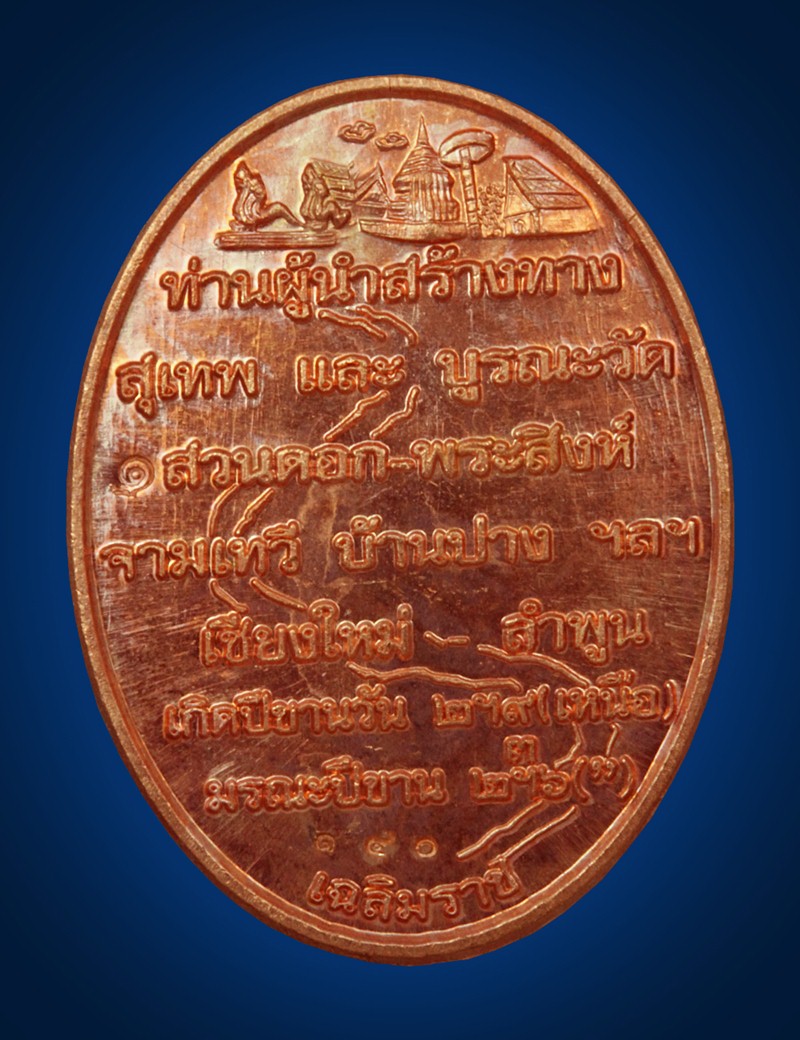 ท่านผู้นำสร้างทาง
สุเทพ และ บูรณะวัด
๑ สวนดอก-พระสิงห์
จามเทวี บ้านปาง ฯลฯ
เชียงใหม่ - ลำพูน
เกิดปีขานวัน ๒ฯ๙(เหนือ)
มรณะปีขาน ๒ฯ๖(")
๓
๑๕๑
เฉลิมราช